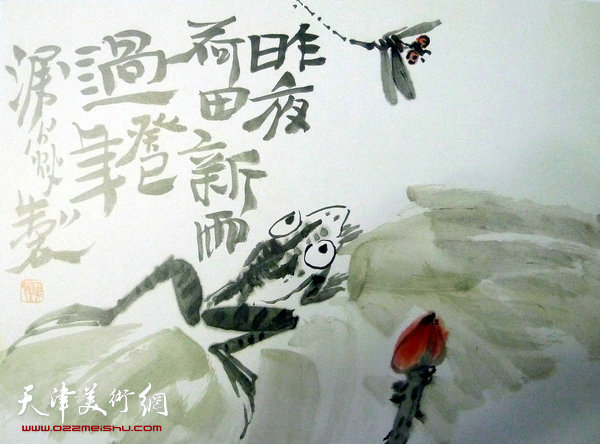 昨夜
荷田新雨
過癸巳年
製
天津美術網
www.022meishu.com